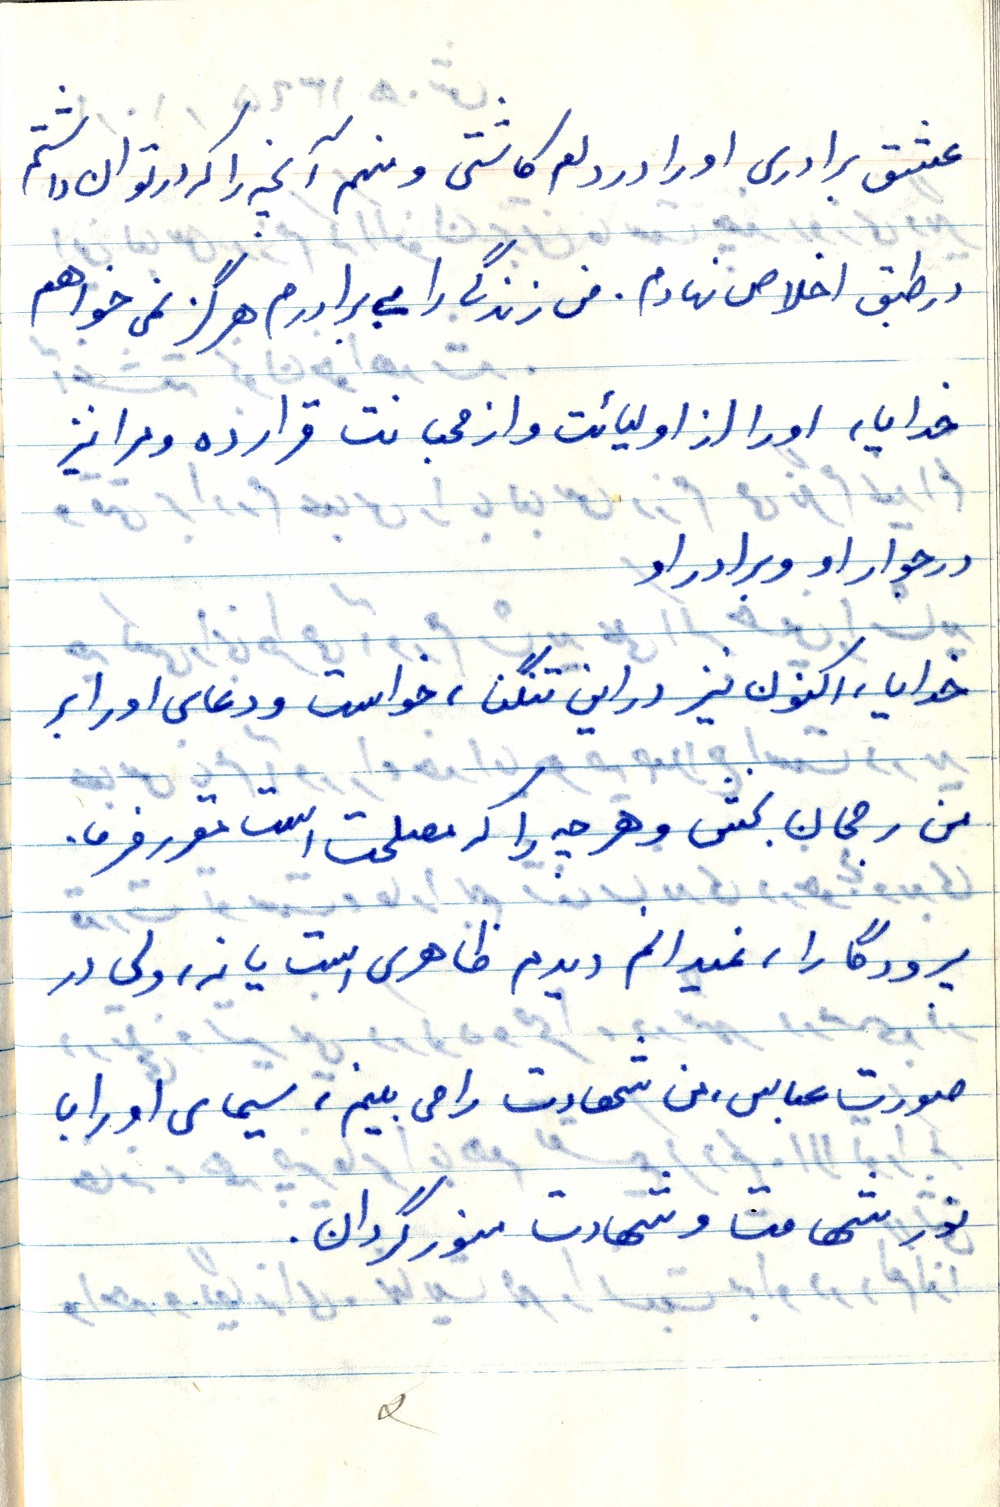 عشق برادری او را در دلم کاشتی و منهم آنچه را که در توان داشتم
در طبق اخلاص نهادم. من زندگی را بی برادرم هرگز نمی خواهم
خدایا، او را از اولیائت و از محبانت قرار ده و مرا نیز
در جوار او و برادر او
خدایا، اکنون نیز در این تنگنا، خواست و دعای او را بر
من رجحان بخش و هر چه را که مصلحت است مقرر فرما.
پرودگارا، نمیدانم دیدم ظاهری است یا نه، ولی در
صورت عباس، من شهادت را می بینم، سیمای او را با
نور شهامت و شهادت منور گردان.